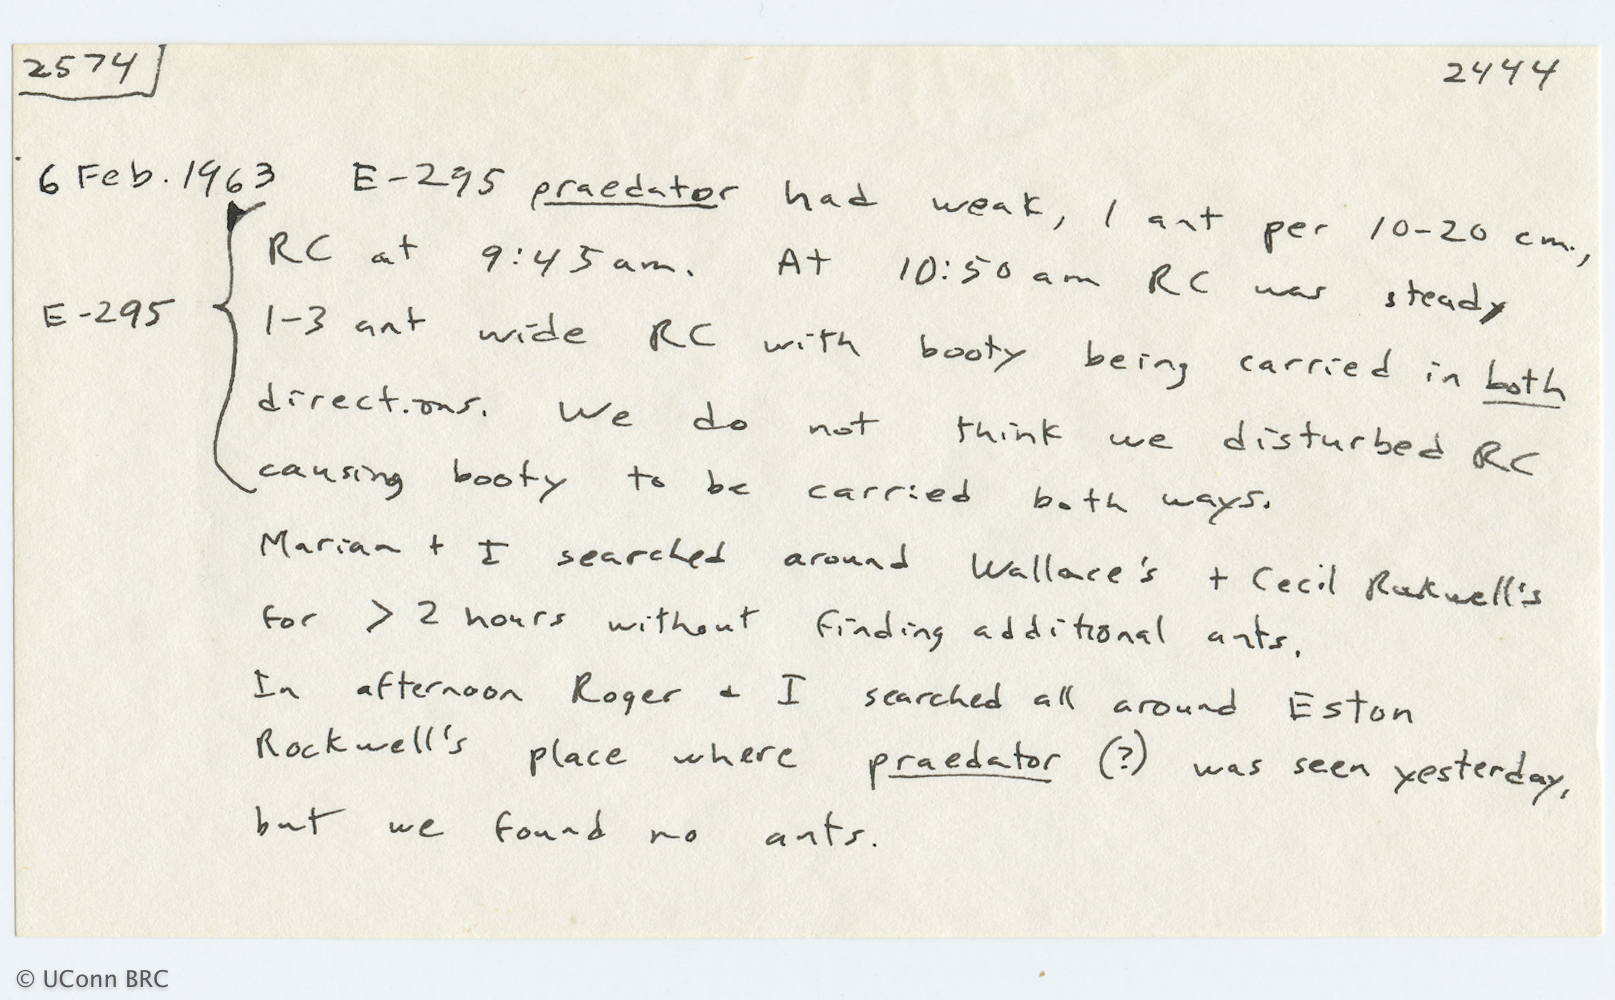 2574
2444
6 Feb. 1963 E-295 praedator had weak, 1 ant per 10-20 cm.,
RC at 9:45 am. At 10:50 am RC was steady
E-295 1-3 ant wide RC with booty being carried in both
directions. We do not think we disturbed RC
causing booty to be carried both ways.
Marian + I searched around Wallace's + Cecil Rockwell's
for > 2 hours without finding additional ants.
In afternoon Roger + I searched all around Eston
Rockwell's place where praedator (?) was seen yesterday,
but we found no ants.
© UConn BRC